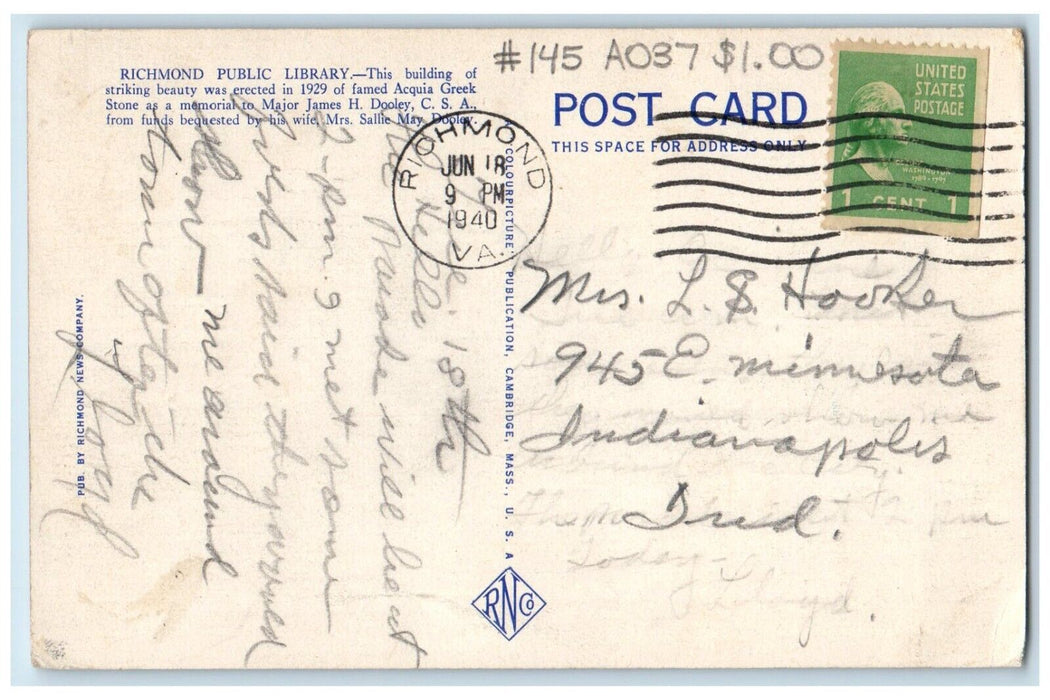 #145 A037 $1.00
RICHMOND PUBLIC LIBRARY.—This building of
striking beauty was erected in 1929 of famed Acquia Greek
Stone as a memorial to Major James H. Dooley, C. S. A.,
from funds bequested by his wife, Mrs. Sallie May Dooley.
POST CARD
THIS SPACE FOR ADDRESS ONLY
UNITED
STATES
POSTAGE
WASHINGTON
1789-1797
1 CENT 1
RICHMOND
JUN 18
9 PM
1940
VA.
COLOURPICTURE PUBLICATION, CAMBRIDGE, MASS., U. S. A
PUB. BY RICHMOND NEWS COMPANY.
RNCo
June 18th
Hello
Parade will be at
2 pm. I met some
said they
show me around
town
Lloyd
Mrs. L. S. Hooker
945 E. Minnesota
Indianapolis
Ind.
2 pm
today
Lloyd.